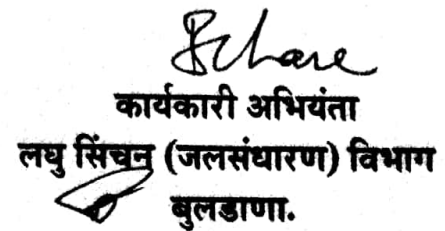 कार्यकारी अभियंता
लघु सिंचन (जलसंधारण) विभाग
बुलडाणा.